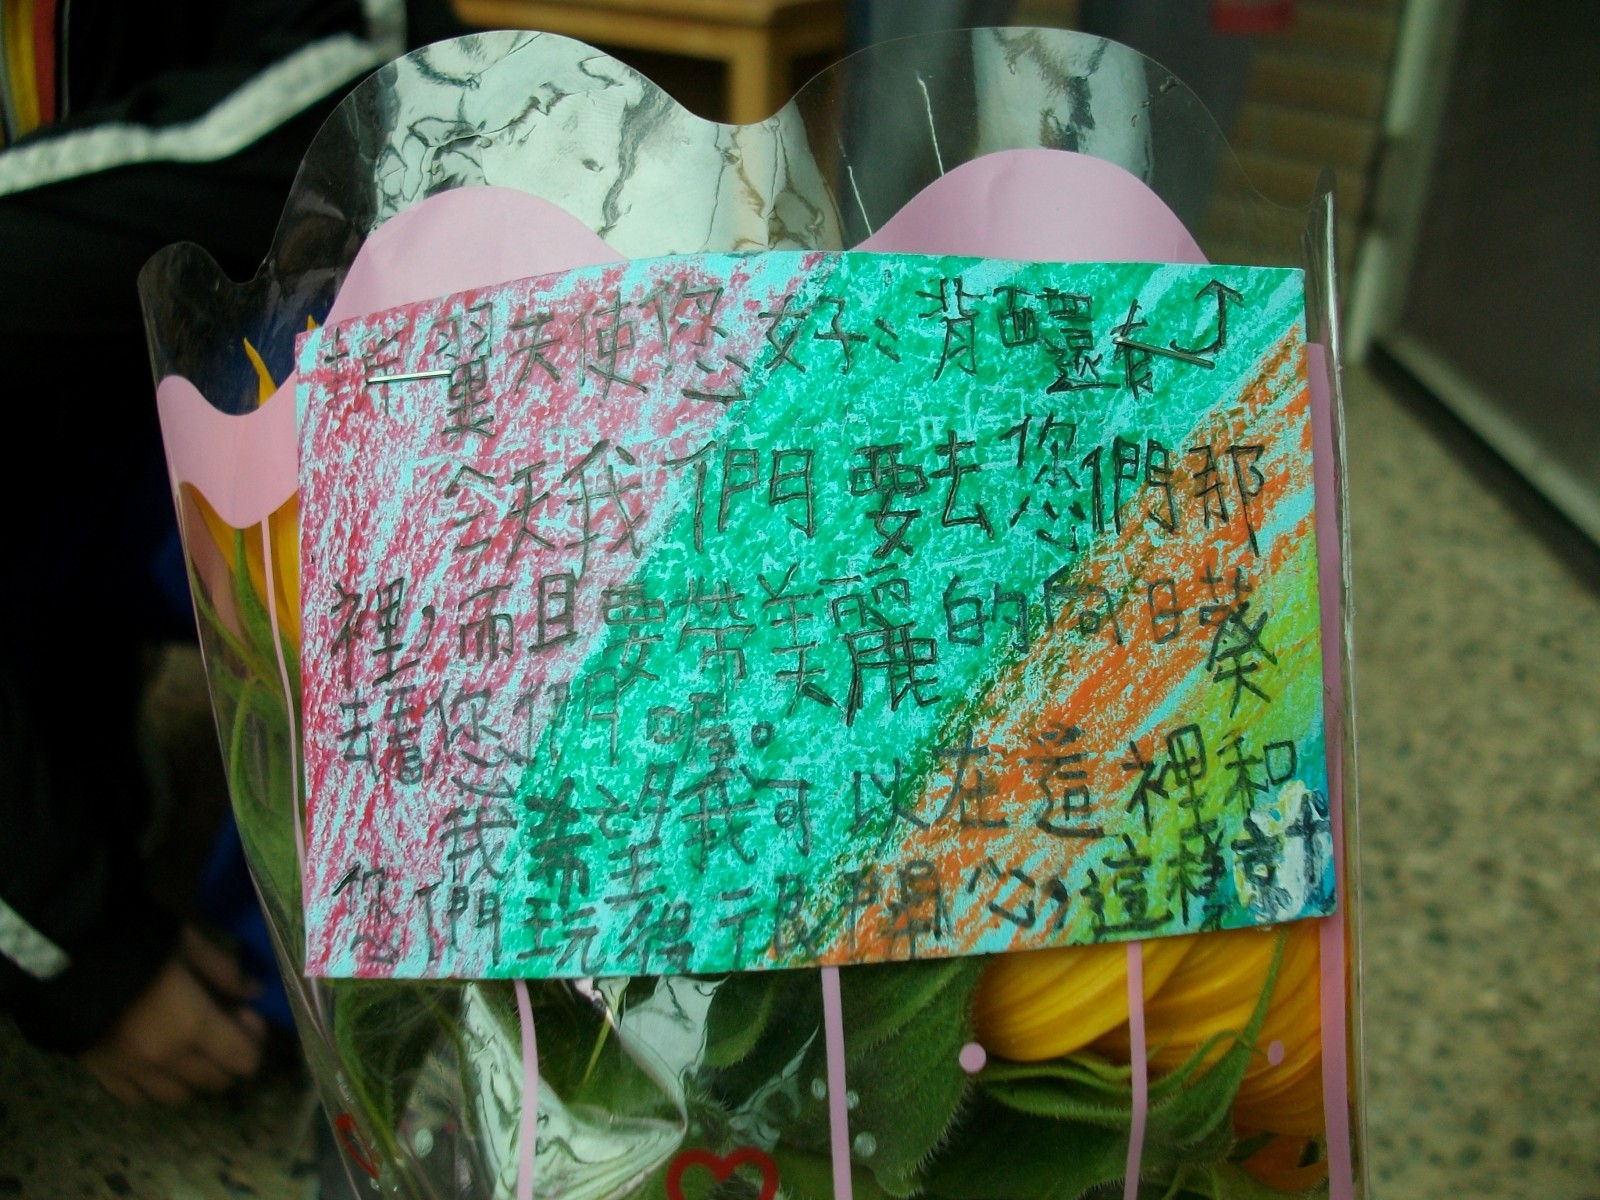 單翼天使您好：背面還有
今天我們要去您們那
裡，而且要帶美麗的向日葵
去看您們喔。
我希望我可以在這裡和
您們玩得很開心，這樣就